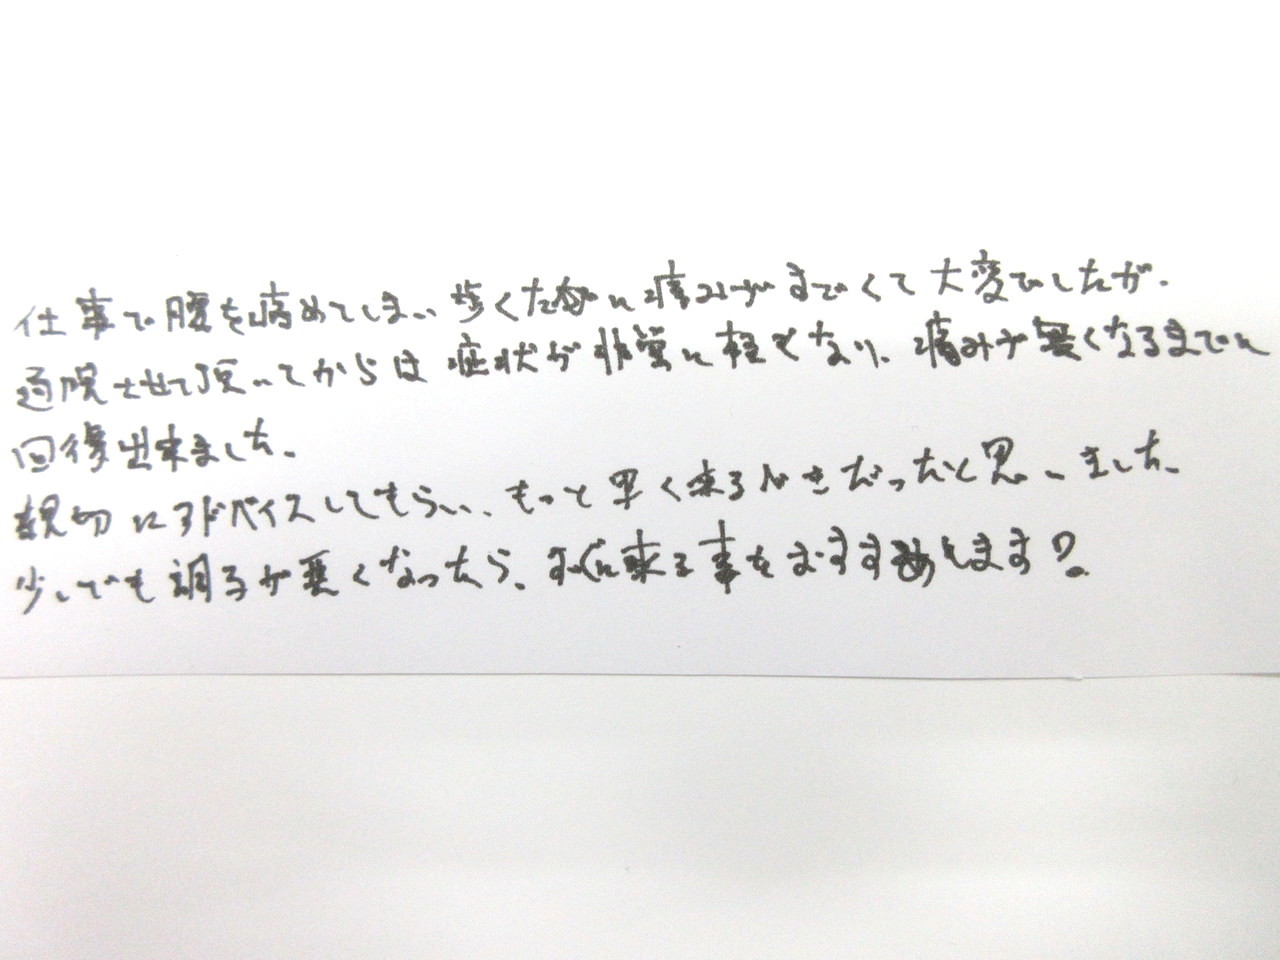 仕事で腰を痛めてしまい歩くたびに痛みがすごくて大変でしたが、
通院させて頂いてからは症状が非常に軽くなり、痛みが無くなるまでに
回復出来ました。
親切にアドバイスしてもらい、もっと早く来るべきだったと思いました。
少しでも調子が悪くなったら、すぐに来る事をおすすめします?